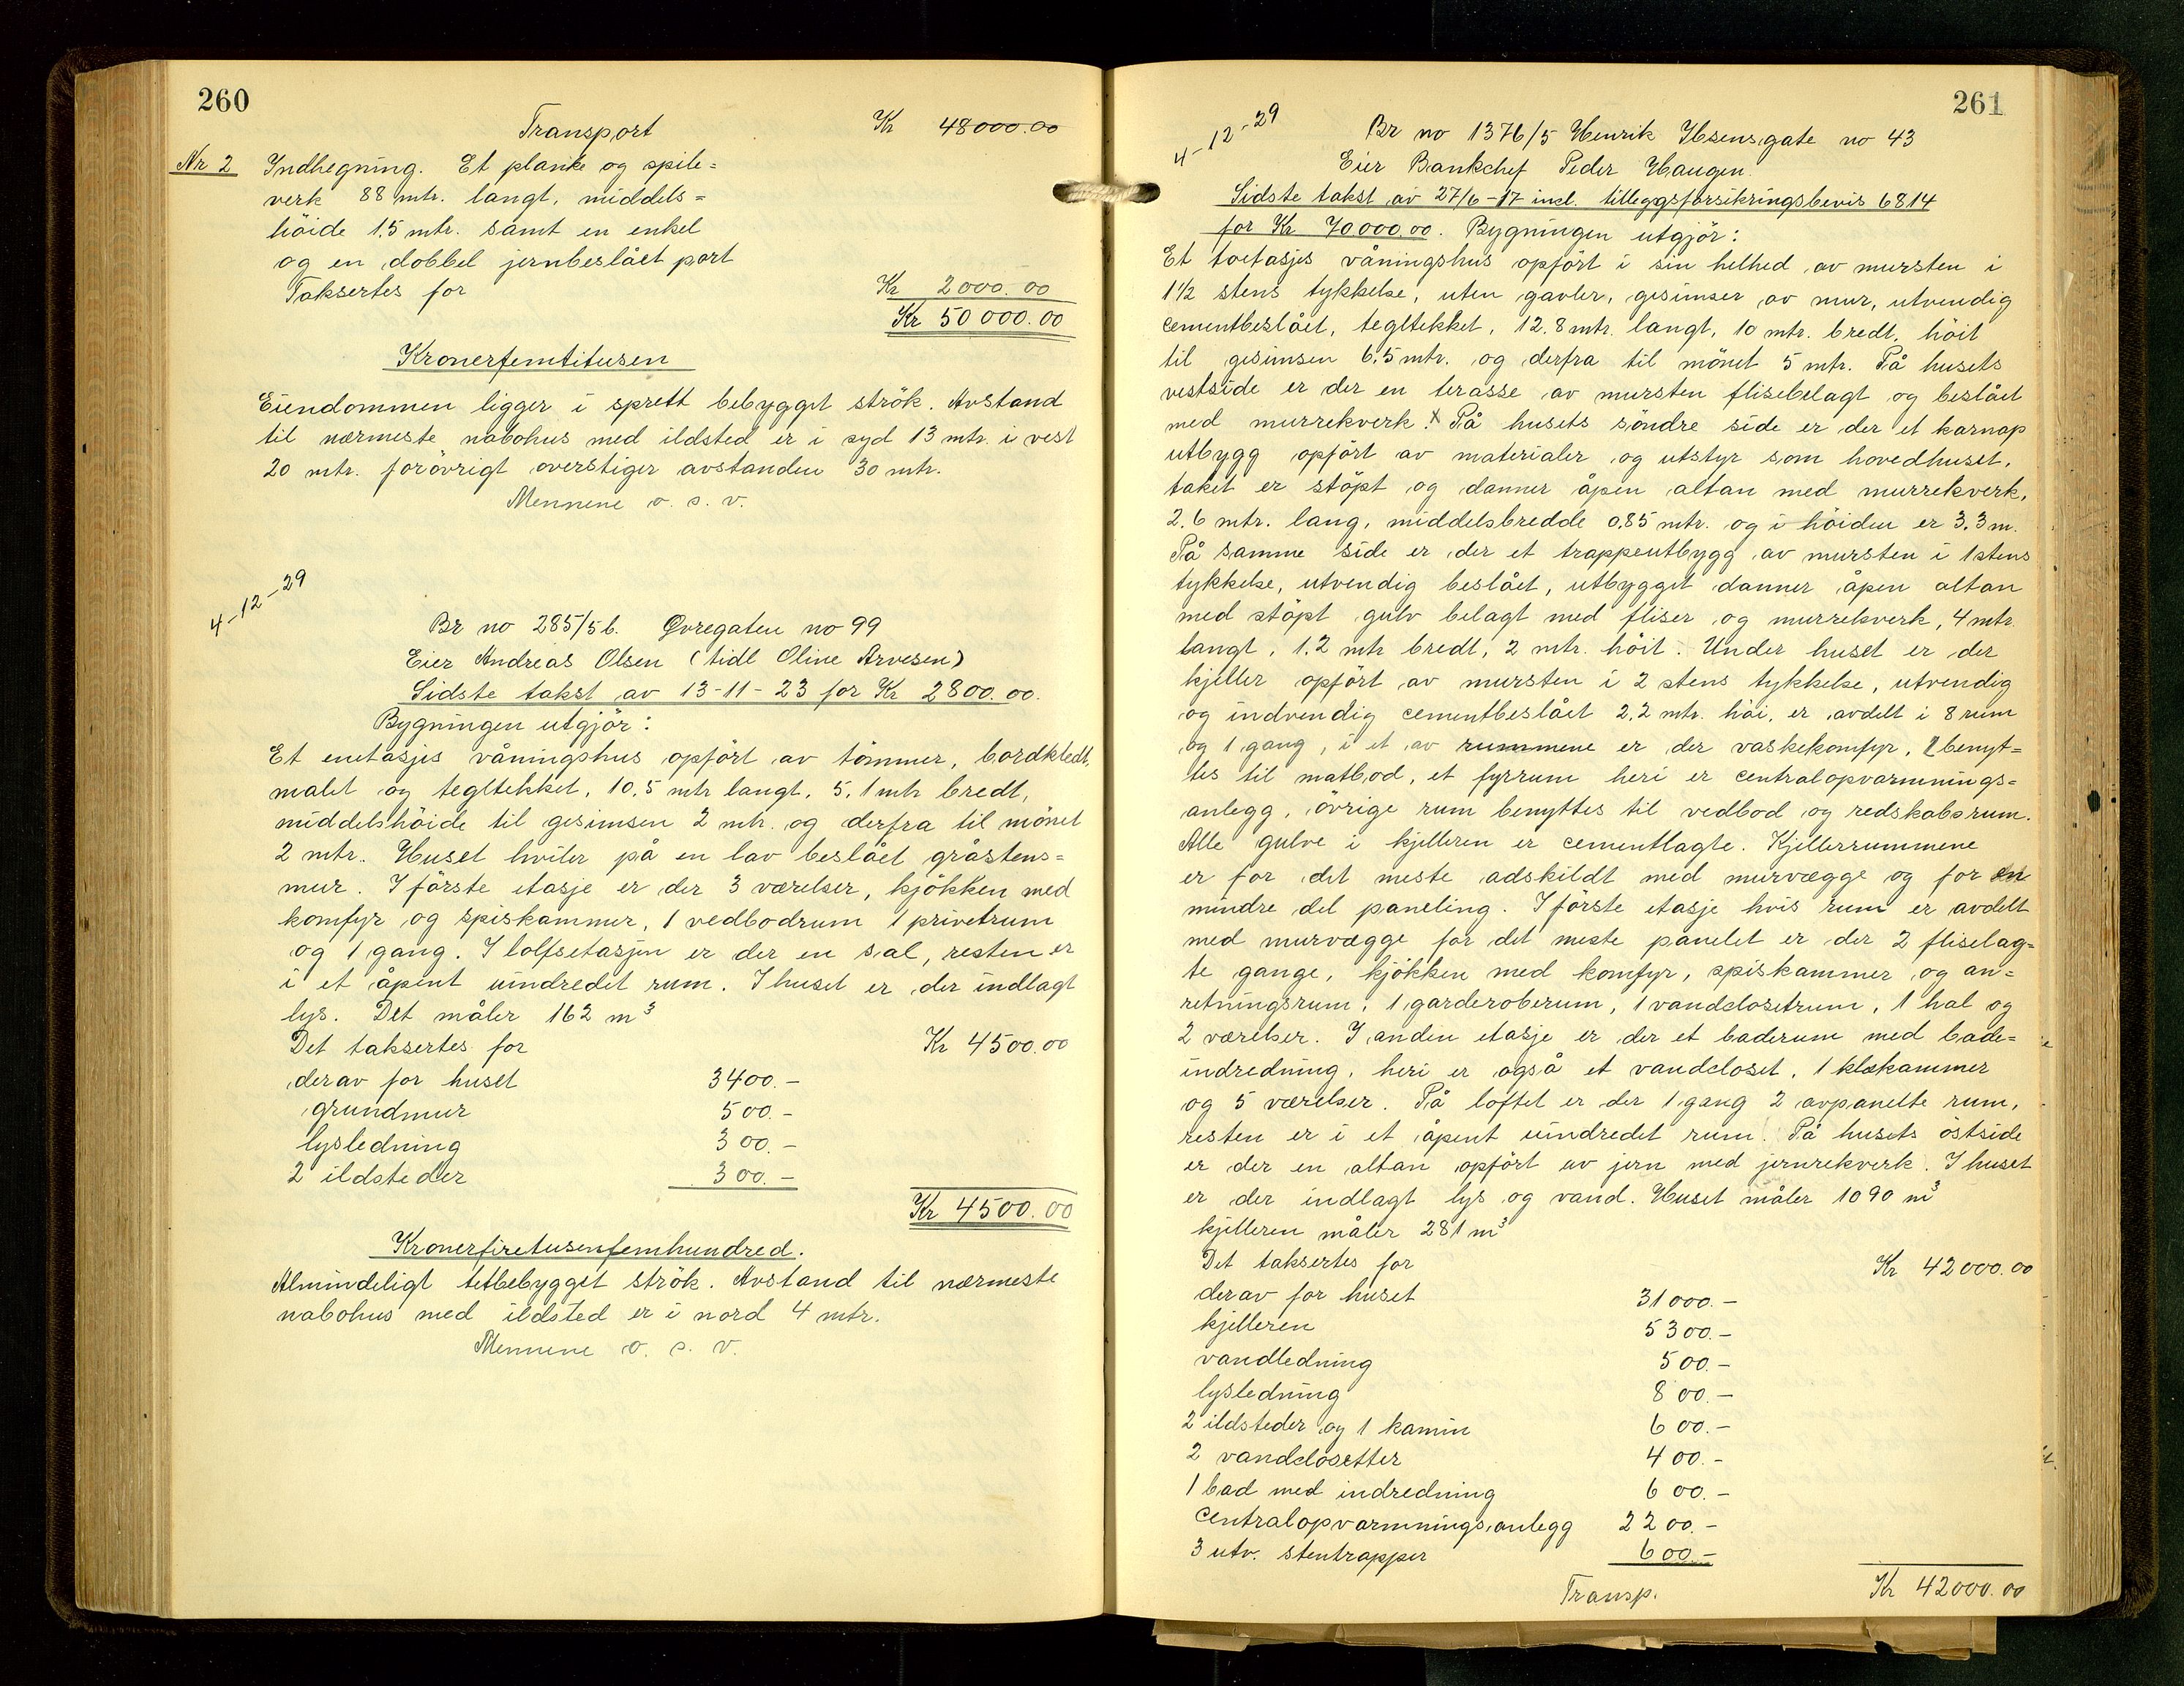 260
Transport Kr 48000.00
Nr 2 Indhegning. Et planke og spile=
verk 88 mtr. langt, middels=
höide 1.5 mtr. samt en enkel
og en dobbel jernbeslået port
Taksertes for Kr 2000.00
Kr 50000.00
Kronerfemtitusen
Eiendommen ligger i sprett bebygget strök. Avstand
til nærmeste nabohus med ildsted er i syd 13 mtr. i vest
20 mtr. forövrigt overstiger avstanden 30 mtr.
Mennene o. s. v.
4-12-29
Br no 285/5b. Øvregaten no 99
Eier Andreas Olsen (tidl Oline Arvesen)
Sidste takst av 13-11-23 for Kr 2800.00.
Bygningen utgjör:
Et enetasjes våningshus opfört av tömmer, bordkledt,
malet og tegltekket, 10.5 mtr langt, 5.1 mtr bredt,
middelshöide til gesimsen 2 mtr. og derfra til mönet
2 mtr. Huset hviler på en lav beslået gråstens=
mur. I förste etasje er der 3 værelser, kjökken med
komfyr og spiskammer, 1 vedbodrum 1 privetrum
og 1 gang. I loftsetasjen er der en sal, resten er
i et åpent uindredet rum. I huset er der indlagt
lys. Det måler 162 m³
Det taksertes for Kr 4500.00
derav for huset 3400.-
grundmur 500.-
lysledning 300.-
2 ildsteder 300.-
Kr 4500.00
Kronerfiretusenfemhundred.
Almindeligt tetbebygget strök. Avstand til nærmeste
nabohus med ildsted er i nord 4 mtr.
Mennene o. s. v.
261
4-12-29
Br no 1376/5 Henrik Ibsensgate no 43
Eier Bankchef Peder Haugen.
Sidste takst av 27/6-17 incl. tilleggsforsikringsbevis 6814
for Kr 70000.00. Bygningen utgjör:
Et toetasjes våningshus opfört i sin helhed av mursten i
1½ stens tykkelse, uten gavler, gesimser av mur, utvendig
cementbeslået, tegltekket, 12.8 mtr. langt, 10 mtr. bredt, höit
til gesimsen 6.5 mtr. og derfra til mönet 5 mtr. På husets
vestside er der en terasse av mursten flisebelagt og beslået
med murrekverk. x På husets söndre side er der et karnap
utbygg opfört av materialer og utstyr som hovedhuset,
taket er stöpt og danner åpen altan med murrekverk,
2.6 mtr. lang, middelsbredde 0.85 mtr. og i höiden er 3.3 m.
På samme side er der et trappeutbygg av mursten i 1 stens
tykkelse, utvendig beslået, utbygget danner åpen altan
med stöpt gulv belagt med fliser og murrekverk, 4 mtr.
langt, 1.2 mtr bredt, 2 mtr. höit. Under huset er der
kjeller opfört av mursten i 2 stens tykkelse, utvendig
og indvendig cementbeslået 2.2 mtr. höi, er avdelt i 8 rum
og 1 gang, i et av rummene er der vaskekomfyr, 1 benyt=
tes til matbod, et fyrrum heri er centralopvarmnings=
anlegg, övrige rum benyttes til vedbod og redskabsrum.
Alle gulve i kjelleren er cementlagte. Kjellerrummene
er for det meste adskildt med murvægge og for en
mindre del paneling. I förste etasje hvis rum er avdelt
med murvægge for det meste panelet er der 2 fliselag=
te gange, kjökken med komfyr, spiskammer og an=
retningsrum, 1 garderoberum, 1 vandclosetrum, 1 hal og
2 værelser. I anden etasje er der et baderum med bade=
indredning, heri er også et vandcloset, 1 klækammer
og 5 værelser. På loftet er der 1 gang 2 avpanelte rum,
resten er i et åpent uindredet rum. På husets östside
er der en altan opfört av jern med jernrekverk. I huset
er der indlagt lys og vand. Huset måler 1090 m³
kjelleren måler 281 m³
Det taksertes for Kr 42000.00
derav for huset 31000.-
kjelleren 5300.-
vandledning 500.-
lysledning 800.-
2 ildsteder og 1 kamin 600.-
2 vandclosetter 400.-
1 bad med indredning 600.-
Centralopvarmningsanlegg 2200.-
3 utv. stentrapper 600.-
Transp. Kr 42000.00